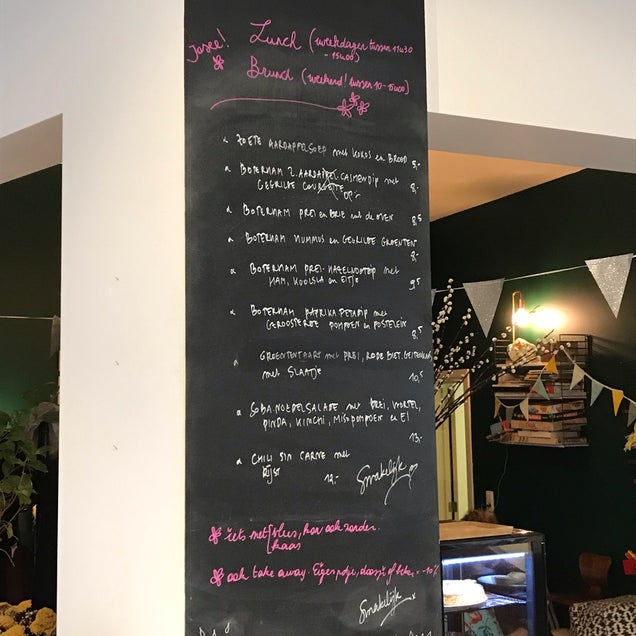 Josee! Lunch (weekdagen tussen 11u30
- 15u00)
Brunch (weekend! tussen 10-15u00)
ZOETE AARDAPPELSOEP met KOKOS en BROOD 5,-
BOTERHAM Z. AARDAPPEL-CASHEWDIP met
GEGRILDE COURGETTE 8,-
OP :-
BOTERHAM PREI en BRIE uit de OVEN 8,5
BOTERHAM HUMMUS en GEGRILDE GROENTEN
8,-
BOTERHAM PREI-HAZELNOOTDIP met
HAM, KOOLSLA en EITJE 9,5
BOTERHAM PAPRIKA-FETADIP met
GEROOSTERDE POMPOEN en POSTELEIN
8,5
GROENTENTAART met PREI, RODE BIET, GEITENKAAS
met SLAATJE 10,5
SOBA-NOEDELSALADE met PREI, WORTEL,
PINDA, KIMCHI, MISOPOMPOEN en EI
13,-
CHILI SIN CARNE met
RIJST 12,-
Smakelijk
iets met vlees, kan ook zonder.
kaas
ook take away. Eigen potje, doosje of beker = -10%
Smakelijk x